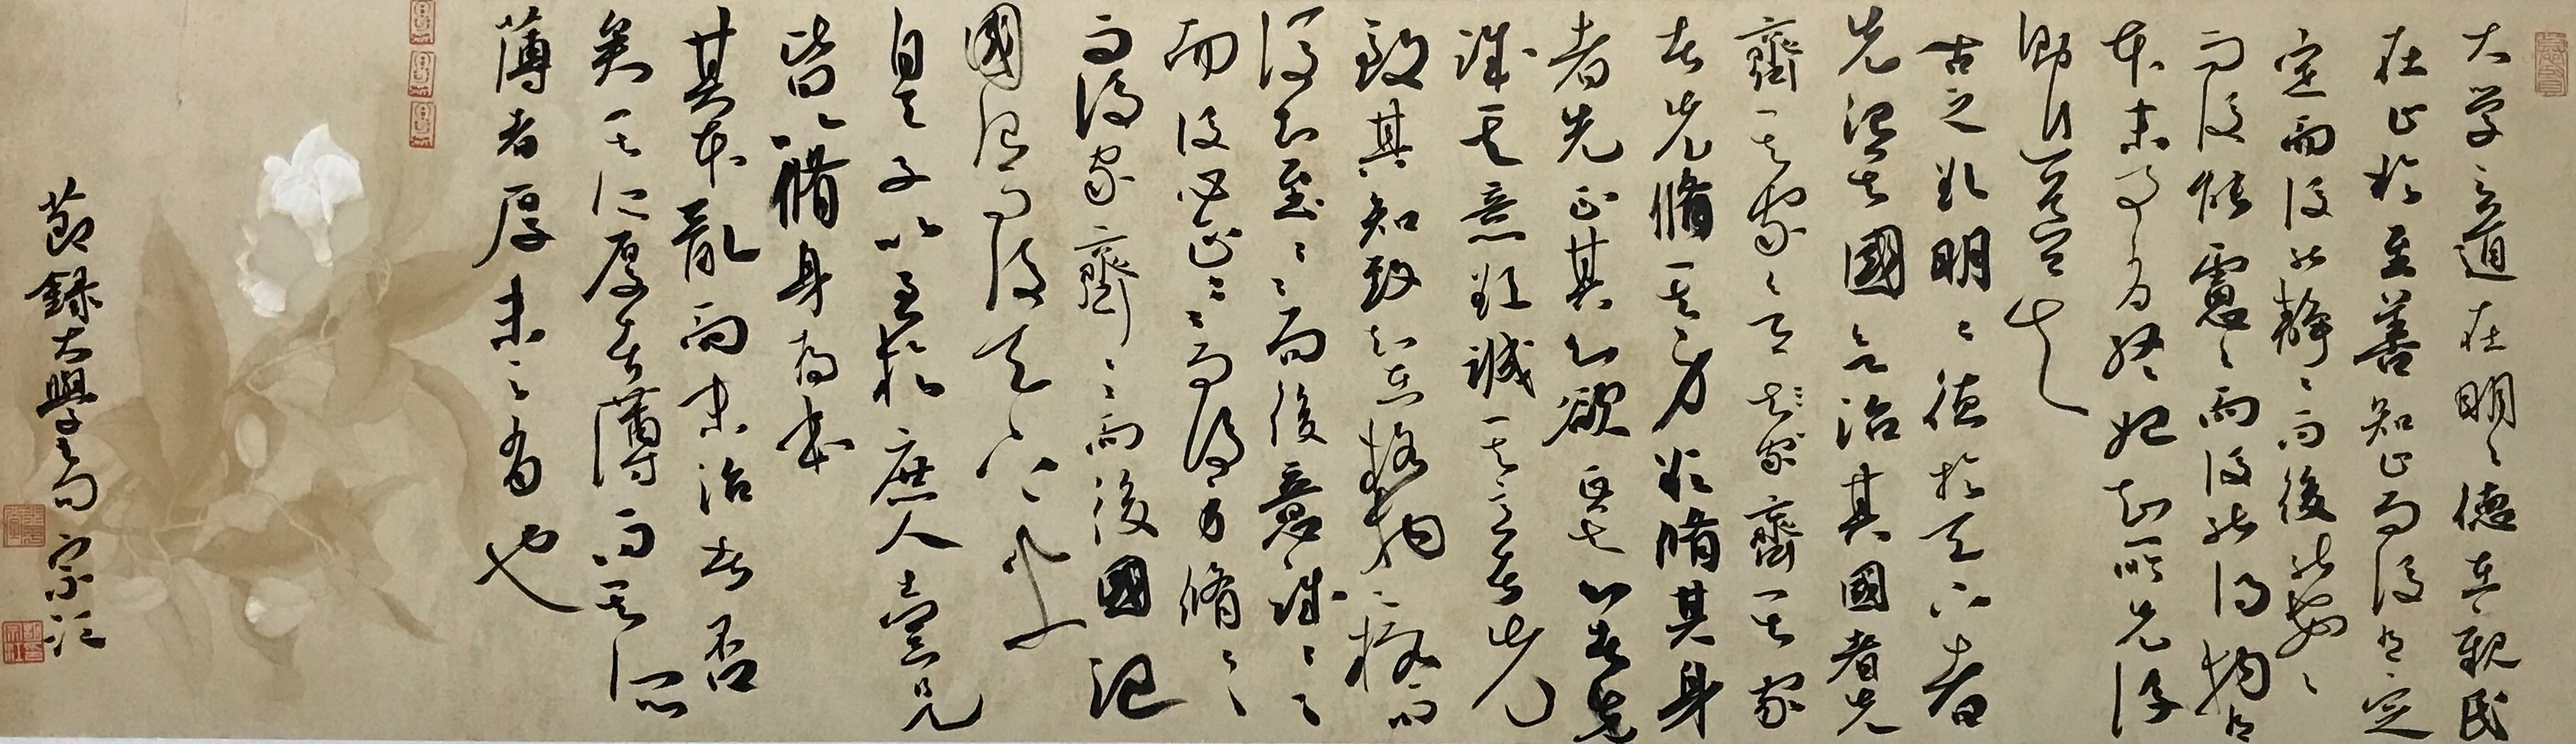 大学之道在明々德在親民
在止於至善知止而後有定
定而後能靜々而後能安々
而後能慮々而後能得物有
本末事有終始知所先後
則近道矣
古之欲明々德於天下者
先治其國欲治其國者先
齊其家々欲其家齊其家
者先脩其身欲脩其身
者先正其心欲正其心者先
誠其意欲誠其意者先
致其知致知在格物々格而
後知至々而後意誠々々
而後心正々々而後身脩々々
而後家齊々々而後國治
國治而後天下平
自天子以至於庶人壹是
皆以脩身為本
其本亂而末治者否
矣其所厚者薄而其所
薄者厚未之有也
節錄大學之句 宗江